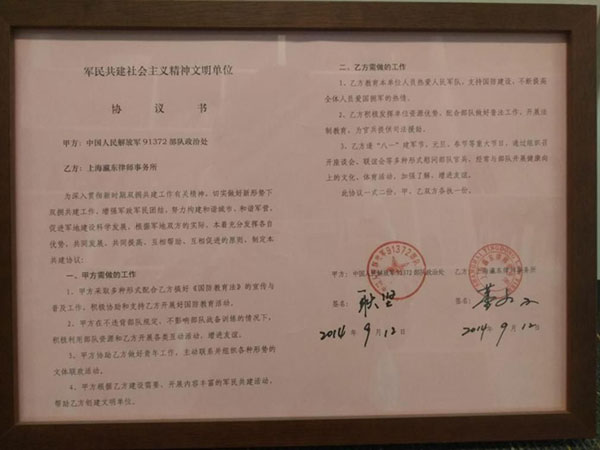 军民共建社会主义精神文明单位
协 议 书
甲方：中国人民解放军91372部队政治处
乙方：上海瀛东律师事务所
为深入贯彻新时期双拥共建工作有关精神，切实做好新形势下
双拥共建工作，增强军政军民团结，努力构建和谐城市、和谐军营，
促进军地建设科学发展，根据军地双方的实际，本着充分发挥各自
优势，共同发展、共同提高、互相帮助、互相促进的原则，制定本
共建协议：
一、甲方需做的工作
1、甲方采取多种形式配合乙方搞好《国防教育法》的宣传与
普及工作，积极协助和支持乙方开展好国防教育活动。
2、甲方在不违背部队规定、不影响部队战备训练的情况下，
积极利用部队资源和乙方开展各类互动活动，增进友谊。
3、甲方协助乙方做好青年工作，主动联系并组织各种形势的
文体联欢活动。
4、甲方根据乙方建设需要，开展内容丰富的军民共建活动，
帮助乙方创建文明单位。
二、乙方需做的工作
1、乙方教育本单位人员热爱人民军队，支持国防建设，不断提高
全体人员爱国拥军的热情。
2、乙方积极发挥单位资源优势，配合部队做好普法工作，开展法
制教育，为官兵提供司法援助。
3、乙方逢“八一”建军节、元旦、春节等重大节日，通过组织召
开座谈会、联谊会等多种形式慰问部队官兵，经常与部队开展健康向
上的文化、体育活动，加强了解，增进友谊。
此协议一式二份，甲、乙双方各执一份。
甲方：中国人民解放军91372部队政治处
乙方：上海瀛东律师事务所
签名：耿坚
签名：
2014年9月12日
2014年9月12日